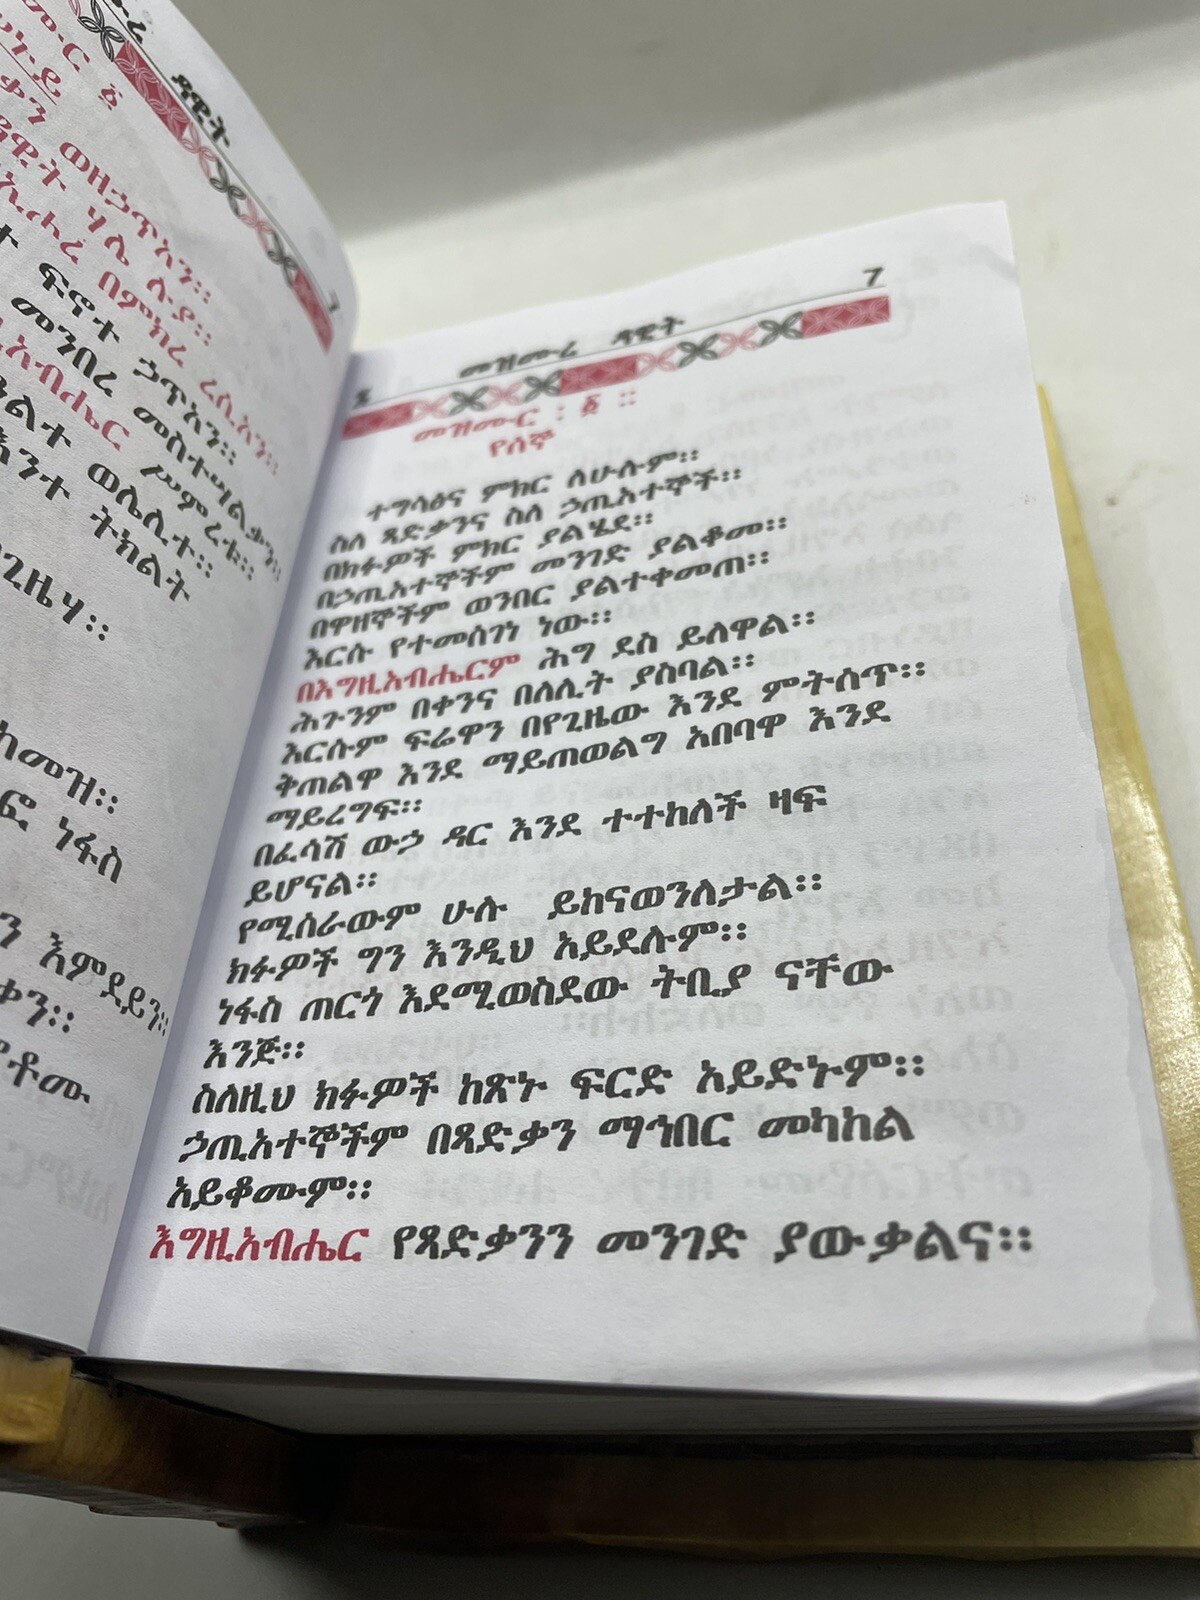 ዳዊት
ወዘኃጥአን።
ሃሌ ሉያ።
በምክረ ረሲአን።
ፍኖተ ኃጥአን።
መንበረ መስተሣልቃን።
እግዚአብሔር ሥምረቱ።
ወሌሊተ።
እንተ ትክልት
በበጊዜሃ።
ከመዝ።
ነፋስ
እምደይን።
መዝሙረ ዳዊት 7
መዝሙር ፡ ፩ ።
የሰኞ
ተግሳፅና ምክር ለሁሉም።
ስለ ጻድቃንና ስለ ኃጢአተኞች።
በክፉዎች ምክር ያልሄደ።
በኃጢአተኞችም መንገድ ያልቆመ።
በዋዘኞችም ወንበር ያልተቀመጠ።
እርሱ የተመሰገነ ነው።
በእግዚአብሔርም ሕግ ደስ ይለዋል።
ሕጉንም በቀንና በለሊት ያስባል።
እርሱም ፍሬዋን በየጊዜው እንደ ምትሰጥ።
ቅጠልዋ እንደ ማይጠወልግ አበባዋ እንደ
ማይረግፍ።
በፈሳሽ ውኃ ዳር እንደ ተተከለች ዛፍ
ይሆናል።
የሚሰራውም ሁሉ ይከናወንለታል።
ክፉዎች ግን እንዲህ አይደሉም።
ነፋስ ጠርጎ እደሚወስደው ትቢያ ናቸው
እንጅ።
ስለዚህ ክፉዎች ከጽኑ ፍርድ አይድኑም።
ኃጢአተኞችም በጻድቃን ማኅበር መካከል
አይቆሙም።
እግዚአብሔር የጻድቃንን መንገድ ያውቃልና።